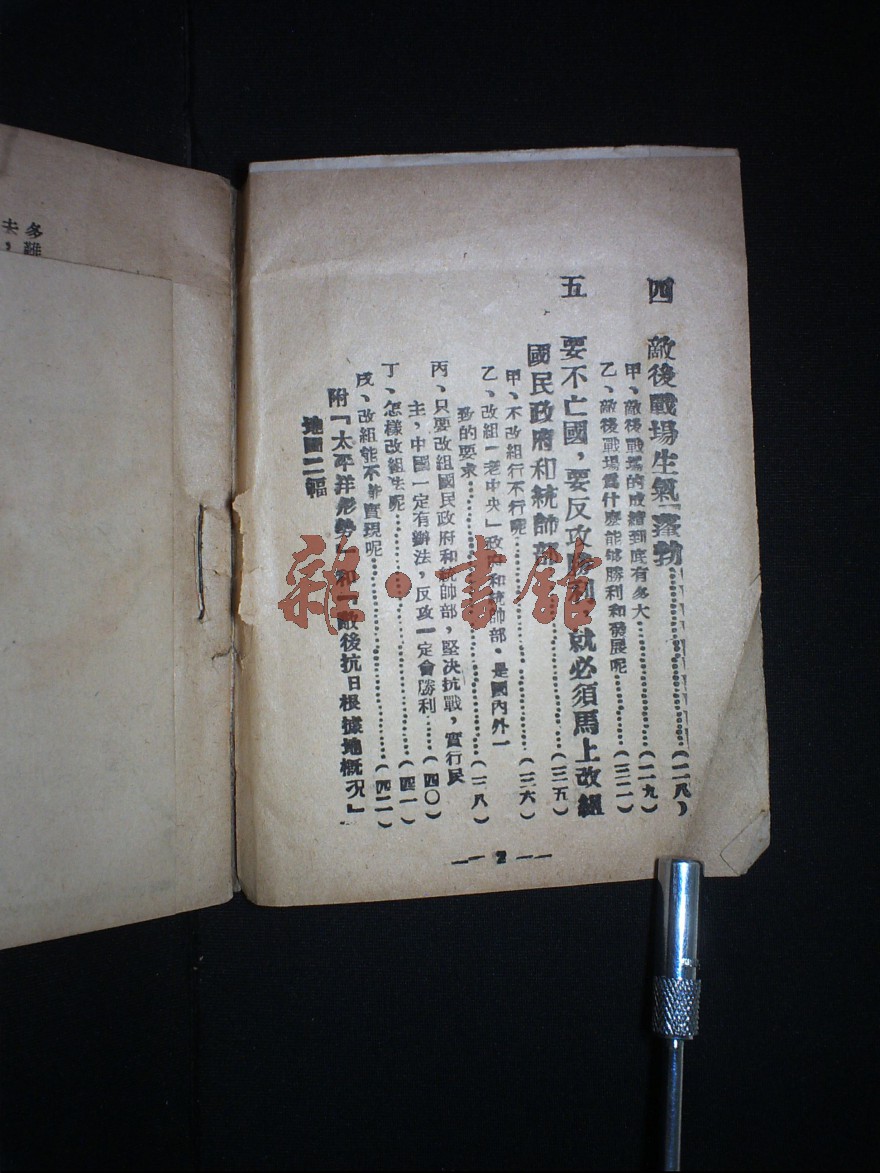 四　敵後戰場生氣蓬勃……(二八)
甲、敵後戰場的成績到底有多大……(二九)
乙、敵後戰場爲什麽能够勝利和發展呢……(三二)
五　要不亡國，要反攻勝利，就必須馬上改組
國民政府和統帥部……(三五)
甲、不改組行不行呢……(三六)
乙、改組「老中央」政府和統帥部，是國內外一
致的要求……(三八)
丙、只要改組國民政府和統帥部，堅决抗戰，實行民
主，中國一定有辦法，反攻一定會勝利……(四〇)
丁、怎樣改組法呢……(四一)
戌、改組能不能實現呢……(四二)
附「太平洋形勢」和「敵後抗日根據地概况」
地圖二幅
— 2 —
多難
去，
雜·書館